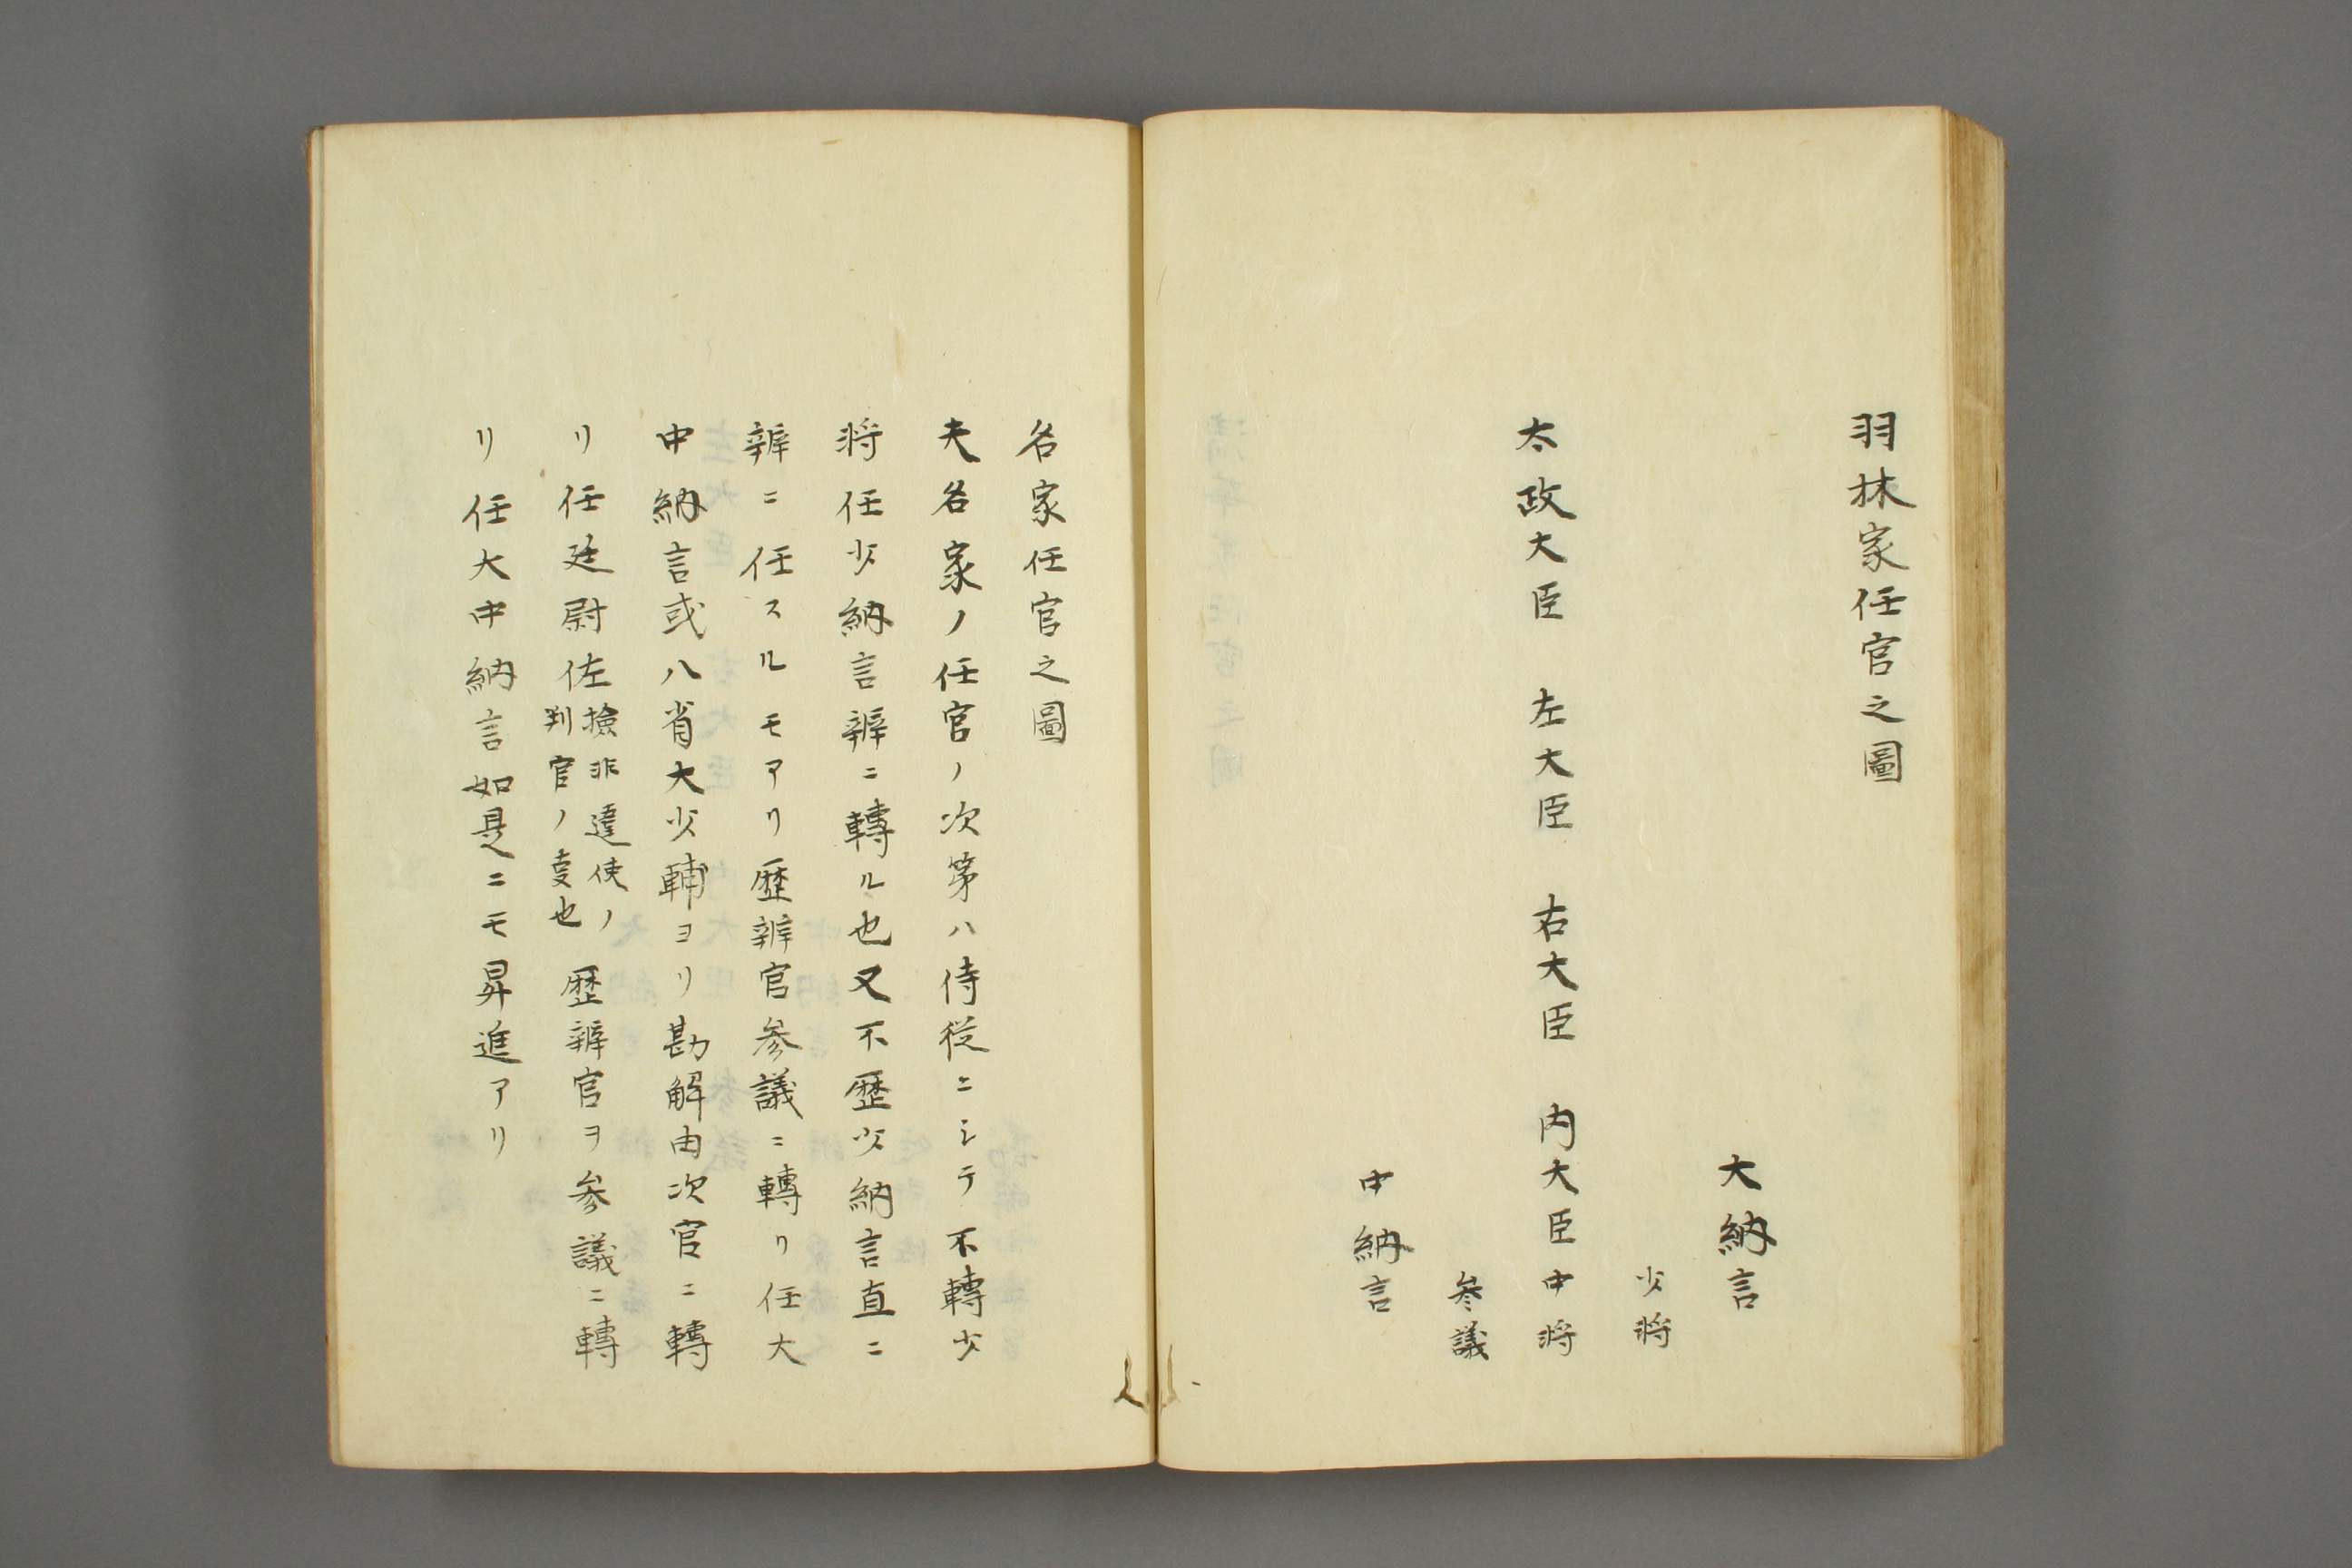 羽林家任官之圖
大納言
少将
太政大臣　左大臣　右大臣　内大臣中将
参議
中納言
名家任官之圖
夫名家ノ任官ノ次第ハ侍従ニシテ不轉少
将任少納言辨ニ轉ル也又不歴少納言直ニ
辨ニ任スルモアリ歴辨官参議ニ轉リ任大
中納言或八省大少輔ヨリ勘解由次官ニ轉
リ任廷尉佐
撿非違使ノ
判官ノ叓也
歴辨官ヲ参議ニ轉
リ任大中納言如是ニモ昇進アリ